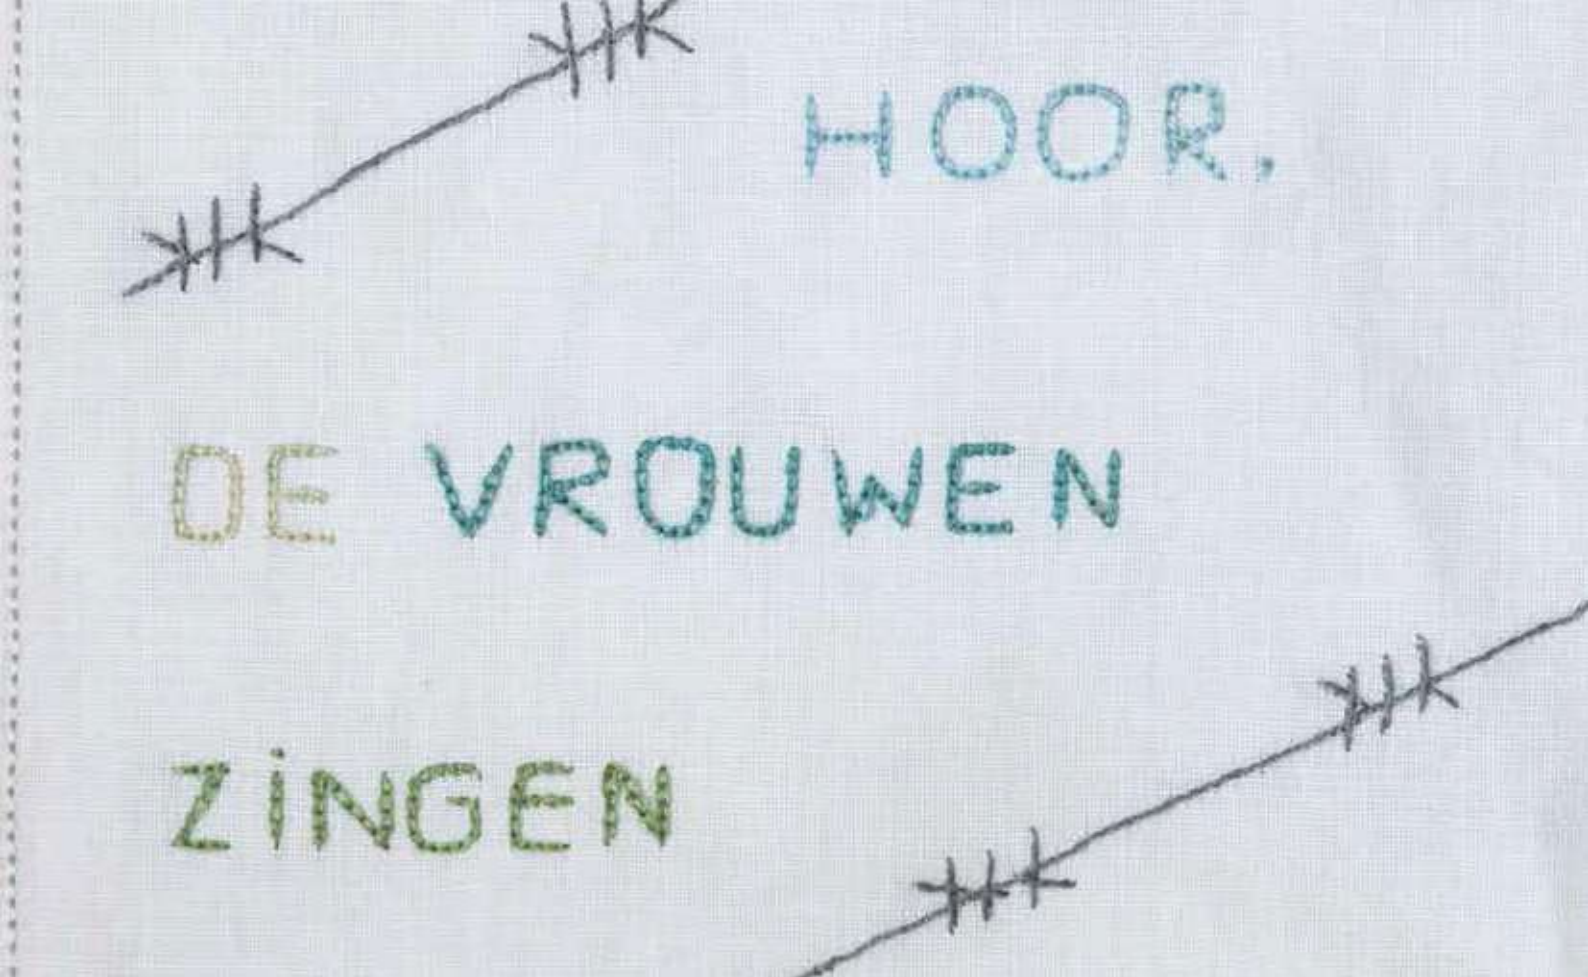 HOOR,
DE VROUWEN
ZiNGEN